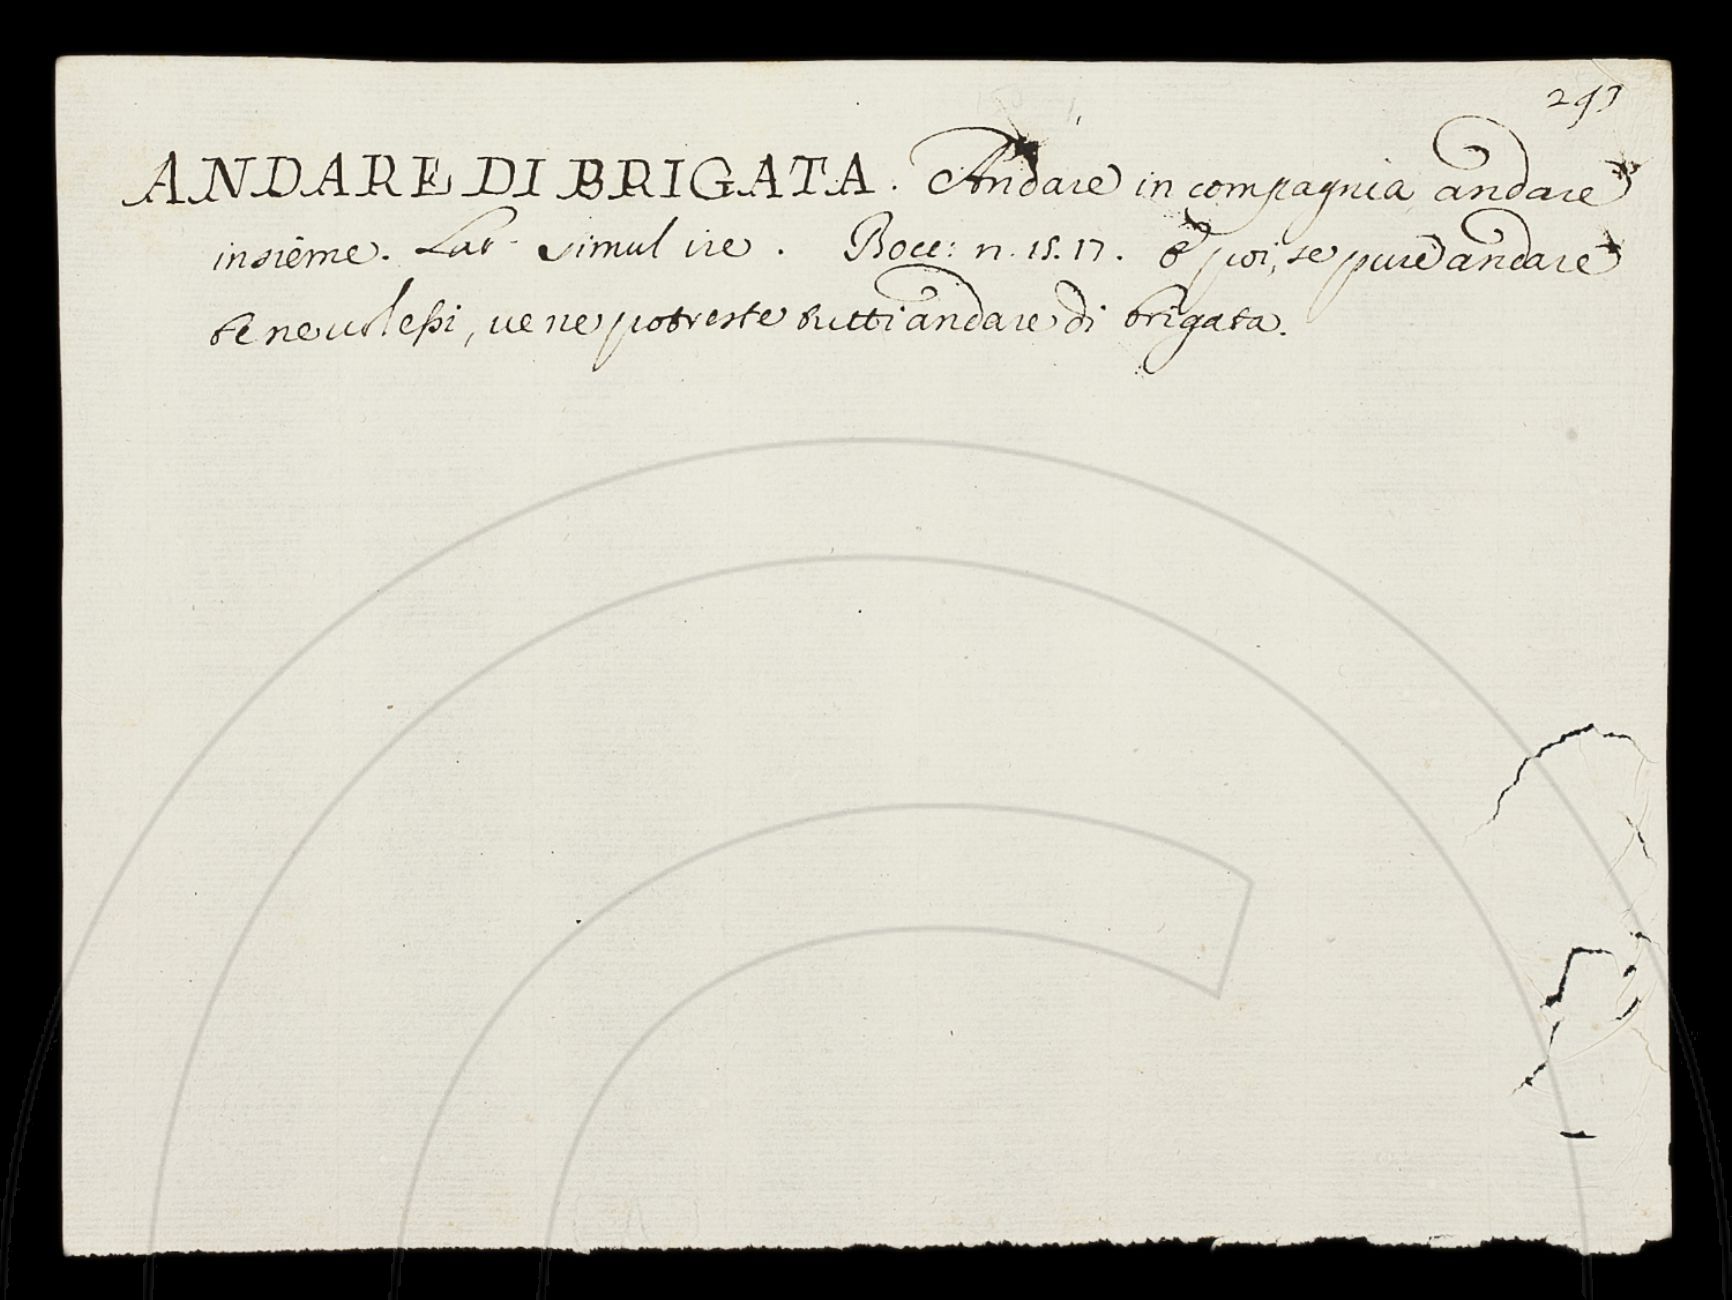 293
ANDARE DI BRIGATA. Andare in compagnia, andare
insieme. Lat. simul ire. Bocc: n. 15. 17. e poi, se pure andare
te ne volessi, ve ne potreste tutti andare di brigata.